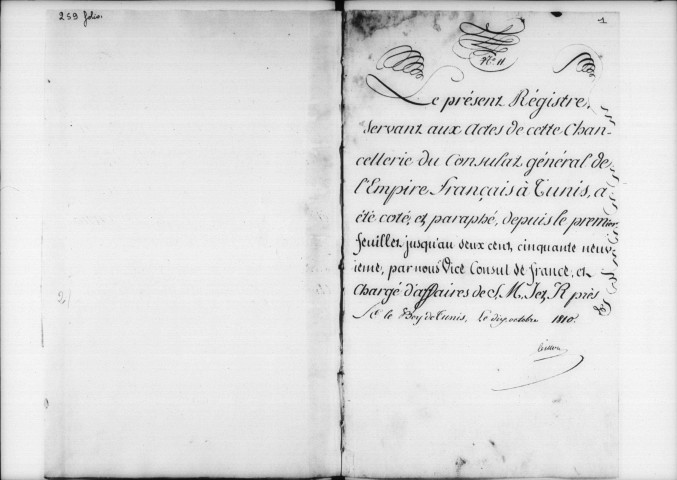 259 folios.
1
N.º 11
Le présent Régistre,
servant aux Actes de cette Chan-
cellerie du Consulat général de
l'Empire Français à Tunis, a
été coté, et paraphé, depuis le premier
feuillet jusqu'au deux cent cinquante neuv-
ieme, par nous Vice Consul de france, et
Chargé d'affaires de S. M. I et R près
le Bey de Tunis, Le dix octobre 1810.